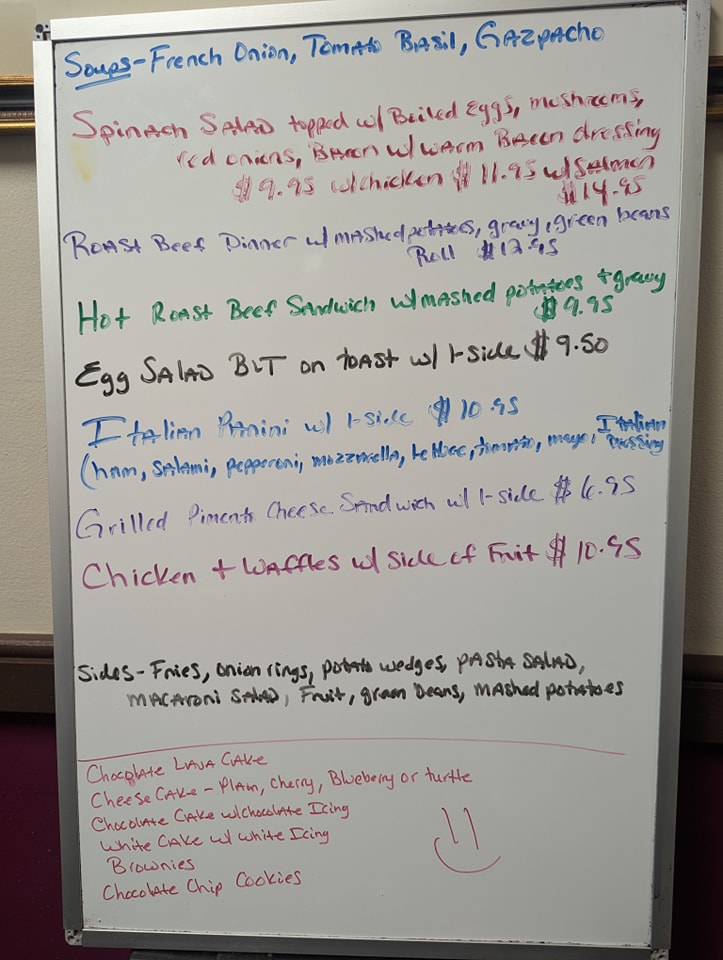 Soups - French Onion, Tomato Basil, Gazpacho
Spinach Salad topped w/ Boiled Eggs, mushrooms,
red onions, Bacon w/ warm Bacon dressing
$9.95 w/chicken $11.95 w/ Salmon
$14.95
Roast Beef Dinner w/ mashed potatoes, gravy, green beans
Roll $13.95
Hot Roast Beef Sandwich w/ mashed potatoes + gravy
$9.95
Egg Salad BLT on toast w/ 1-side $9.50
Italian Panini w/ 1-side $10.95
(ham, salami, pepperoni, mozzarella, lettuce, tomato, mayo, Italian
dressing
Grilled Pimento Cheese Sandwich w/ 1-side $6.95
Chicken + Waffles w/ side of Fruit $10.95
Sides - Fries, onion rings, potato wedges, pasta salad,
macaroni salad, Fruit, green beans, mashed potatoes
Chocolate Lava Cake
Cheese Cake - Plain, cherry, Blueberry or turtle
Chocolate Cake w/chocolate Icing
White Cake w/ white Icing
Brownies
Chocolate Chip Cookies